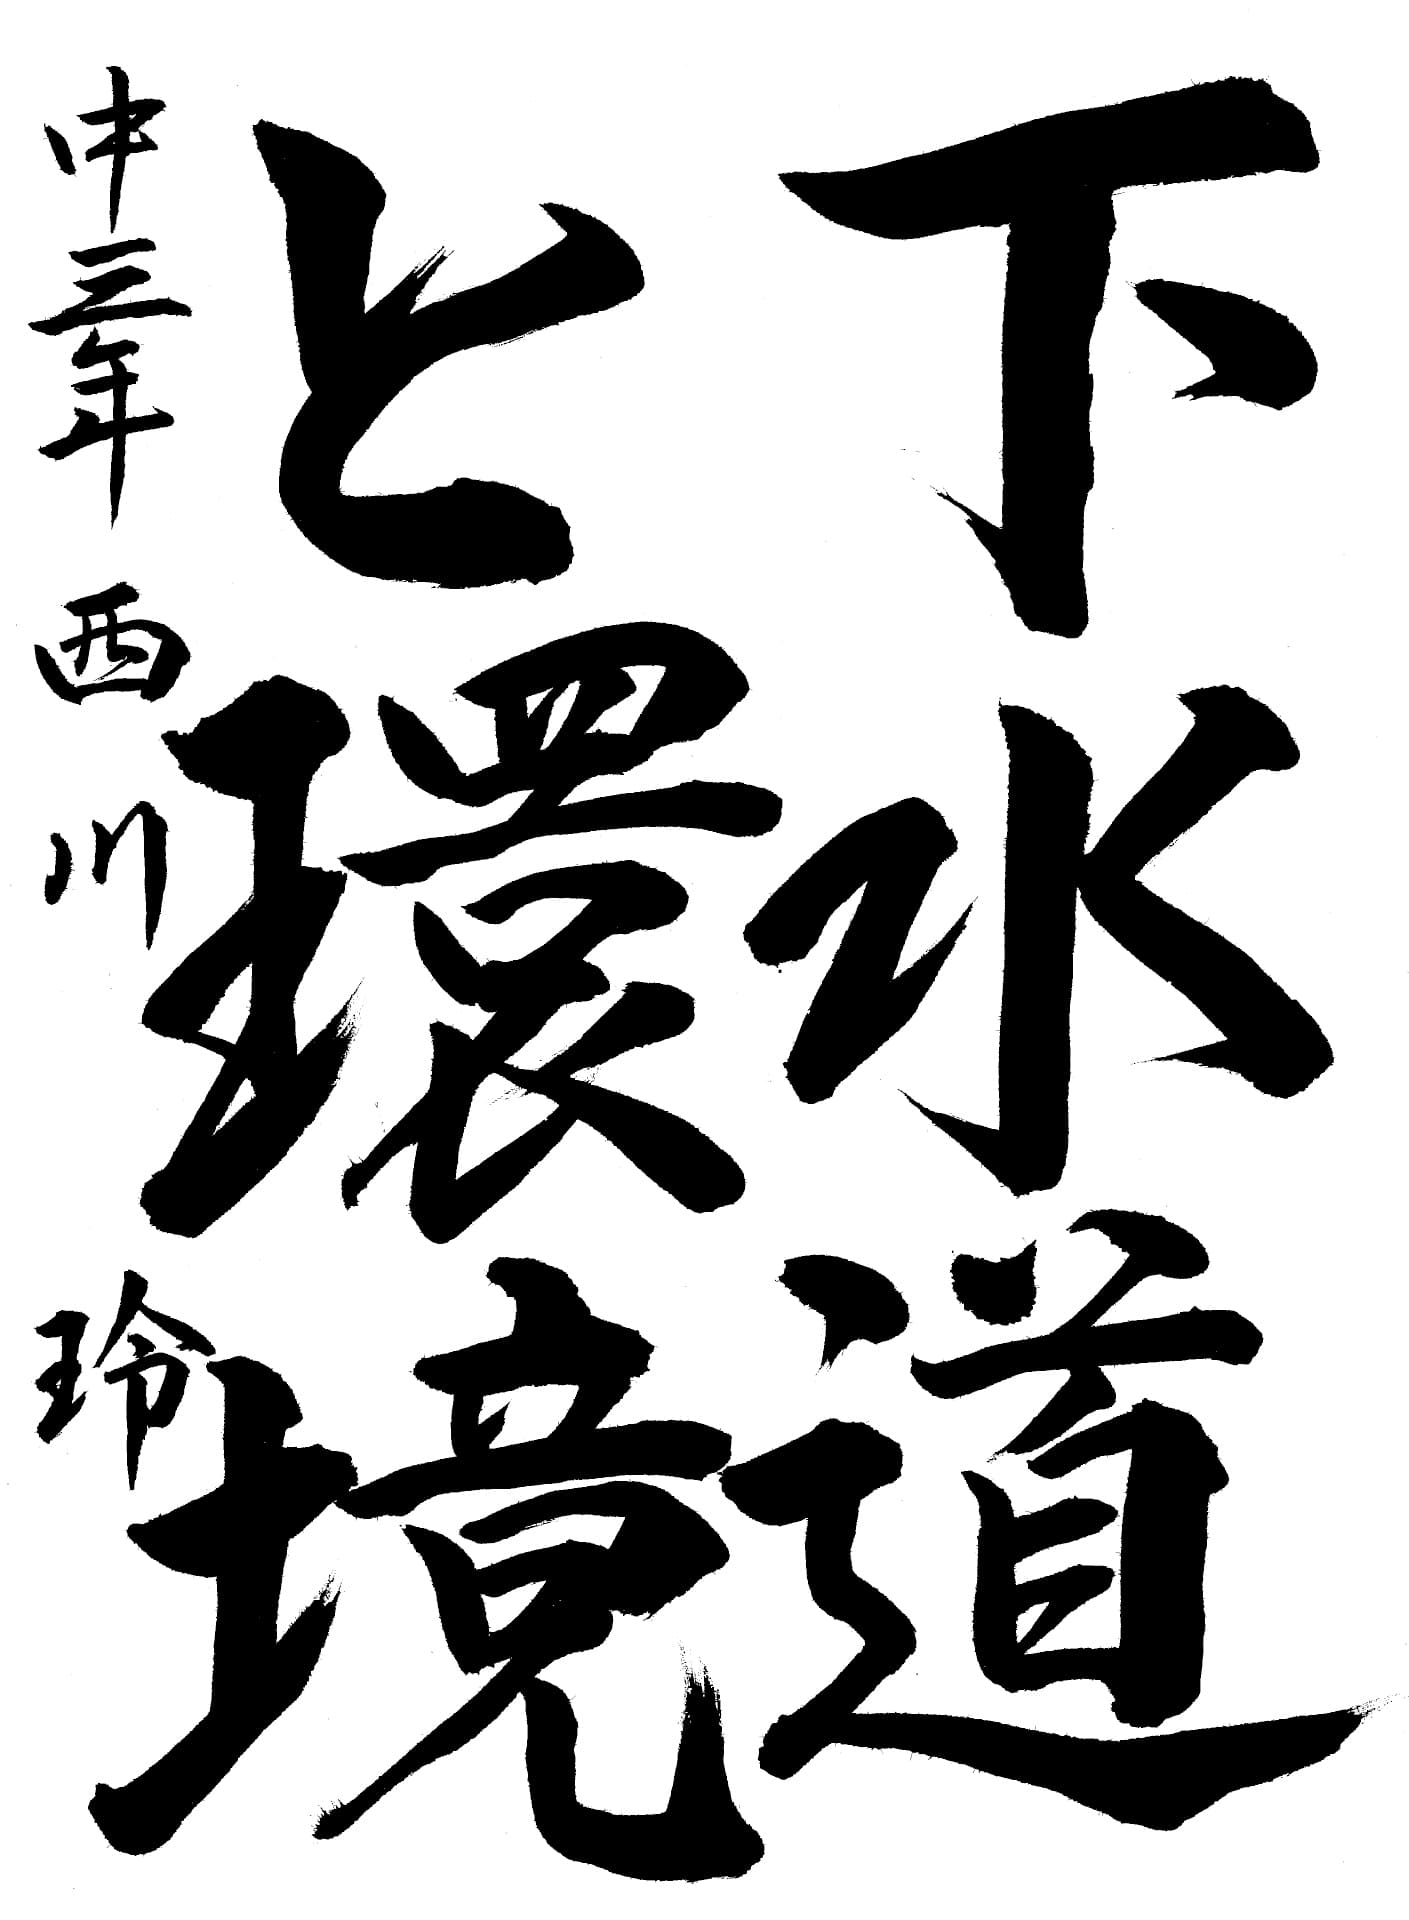 下水道
と環境
中三年 西川 玲